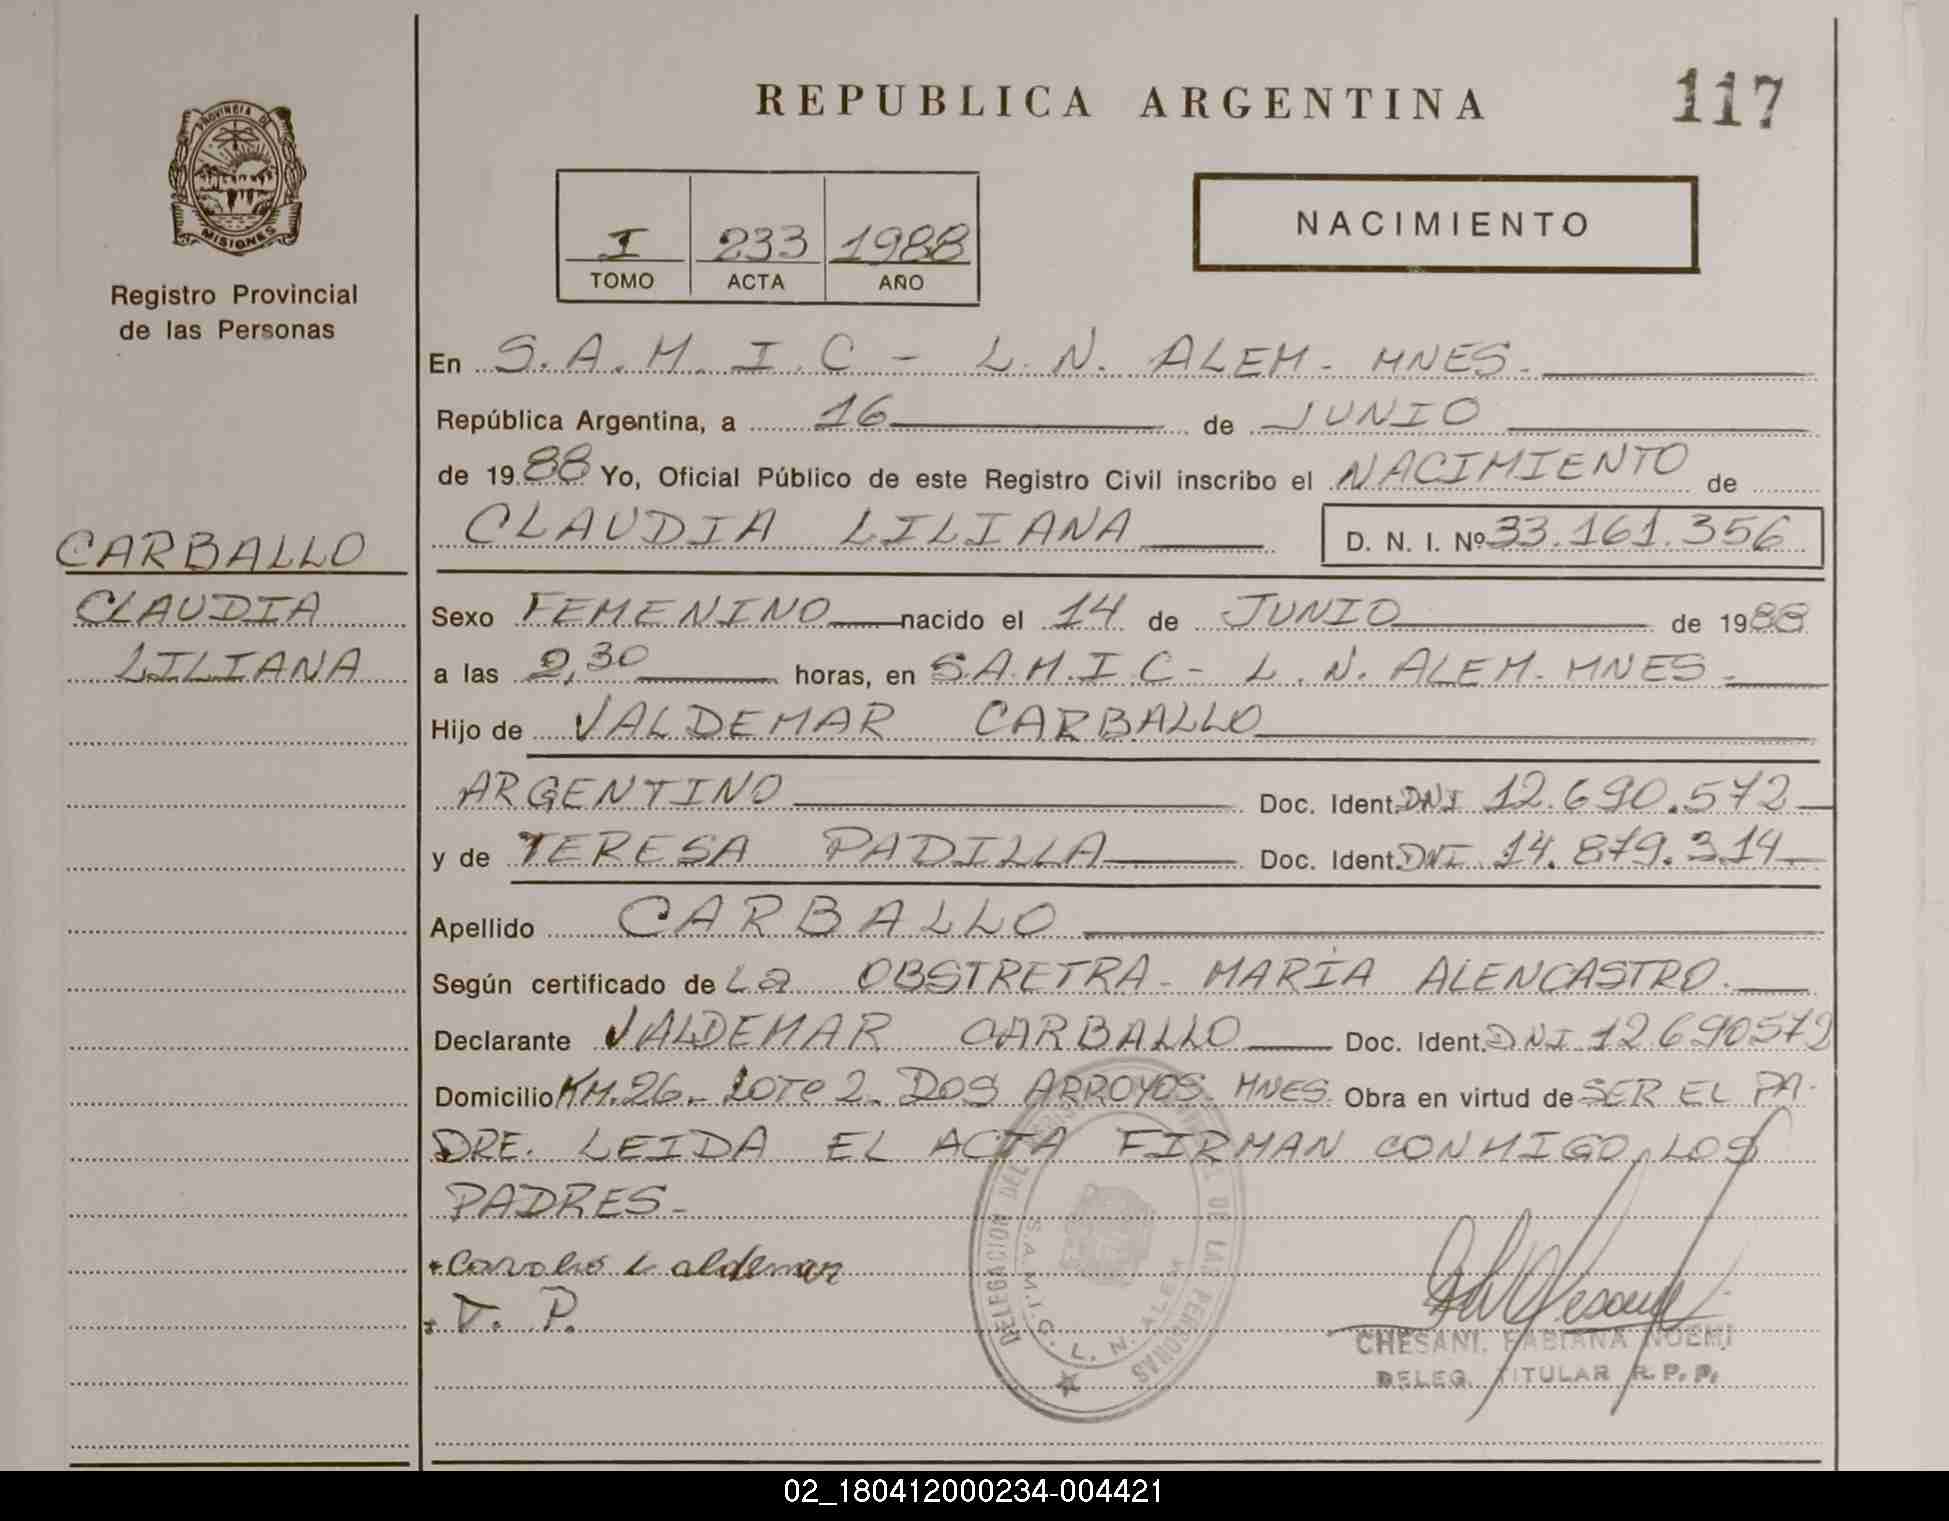 REPUBLICA ARGENTINA
117
PROVINCIA DE
MISIONES
Registro Provincial
de las Personas
I 233 1988
TOMO ACTA AÑO
NACIMIENTO
En S.A.M.I.C - L.N. ALEM - MNES.
República Argentina, a 16 de JUNIO
de 1988 Yo, Oficial Público de este Registro Civil inscribo el NACIMIENTO de
CLAUDIA LILIANA D. N. I. Nº 33.161.356
CARBALLO
CLAUDIA
LILIANA
Sexo FEMENINO nacido el 14 de JUNIO de 1988
a las 2,30 horas, en S.A.M.I.C - L.N. ALEM - MNES -
Hijo de VALDEMAR CARBALLO
ARGENTINO Doc. Ident. DNI 12.690.572
y de TERESA PADILLA Doc. Ident. DNI 14.879.314
Apellido CARBALLO
Según certificado de La OBSTRETRA - MARÍA ALENCASTRO.
Declarante VALDEMAR CARBALLO Doc. Ident. DNI 12690572
Domicilio KM.26 - LOTE 2. DOS ARROYOS. MNES Obra en virtud de SER EL PA-
DRE. LEIDA EL ACTA FIRMAN CONMIGO LOS
PADRES -
T. P.
DELEGACION DEL DE LAS PERSONAS
S.A.M.I.C. L. N. ALEM
CHESANI, FABIANA NOEMI
DELEG. TITULAR R. P. P.
02_180412000234-004421